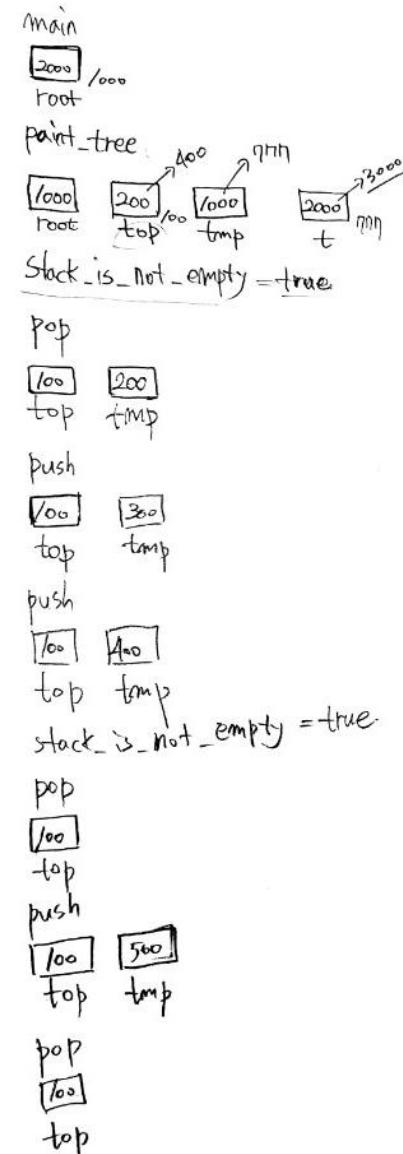 main
2000 1000
root
paint_tree
400 777 3000
1000 200 100 1000 2000 777
root top tmp t
Stack_is_not_empty = true
pop
100 200
top tmp
push
100 300
top tmp
push
100 400
top tmp
stack_is_not_empty = true
pop
100
top
push
100 500
top tmp
pop
100
top